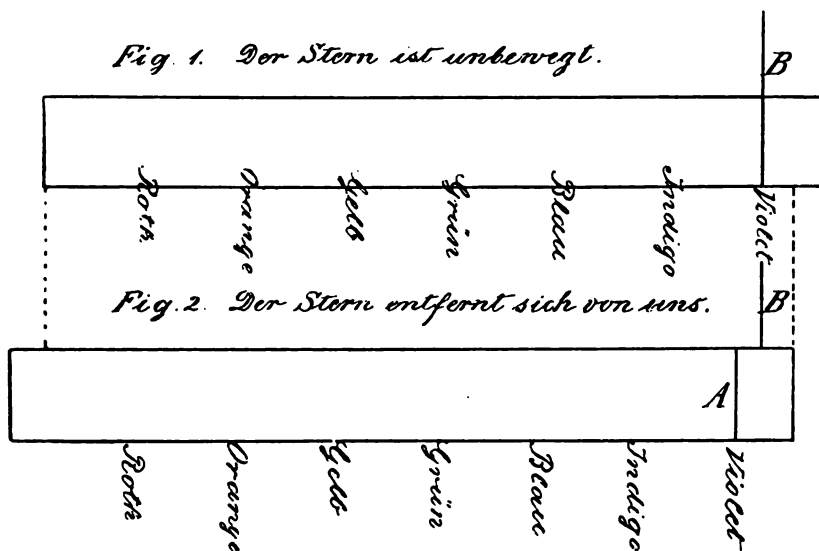 Fig. 1. Der Stern ist unbewegt.
B
Roth. Orange Gelb Grün Blau Indigo Violet
Fig. 2. Der Stern entfernt sich von uns.
B
A
Roth Orange Gelb Grün Blau Indigo Violet